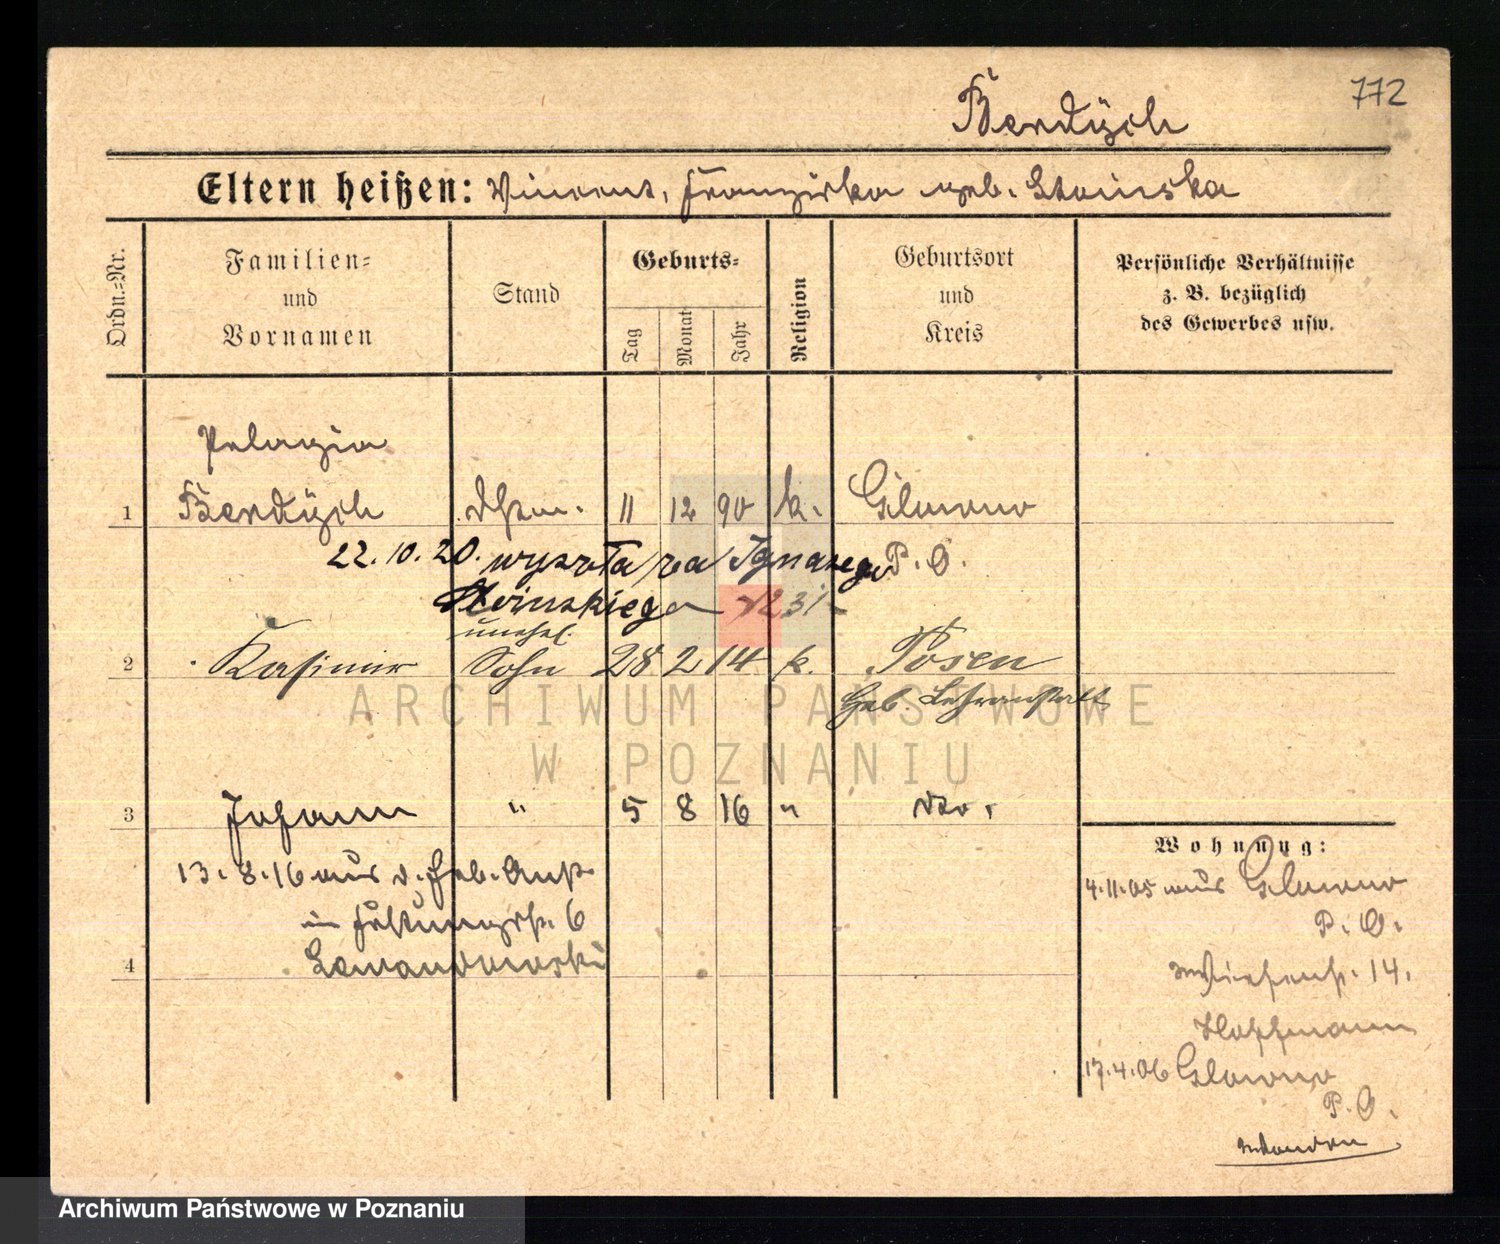 772
Berdÿch
Eltern heißen: Vincent, Franziska geb. Stoinska
Ordn.-Nr.
Familien-
und
Vornamen
Stand
Geburts-
Tag
Monat
Jahr
Religion
Geburtsort
und
Kreis
Persönliche Verhältnisse
z. B. bezüglich
des Gewerbes usw.
Pelagia
1 Berdÿch 11 12 90 k. Glowno
22.10.20. wyszła za Ignacego P. O.
unehl.
2 Kasimir Sohn 28 2 14 k. Posen
Geb. Lehranstalt
3 Johann " 5 8 16 " dto.
13.8.16 aus d. Geb. Anst.
in 6
4 Lewandowski
Wohnung:
4.11.05 aus Glowno
P. O.
Wiesenstr. 14.
Hoffmann
17.4.06 Glowno
P. O.
ARCHIWUM PAŃSTWOWE
W POZNANIU
Archiwum Państwowe w Poznaniu